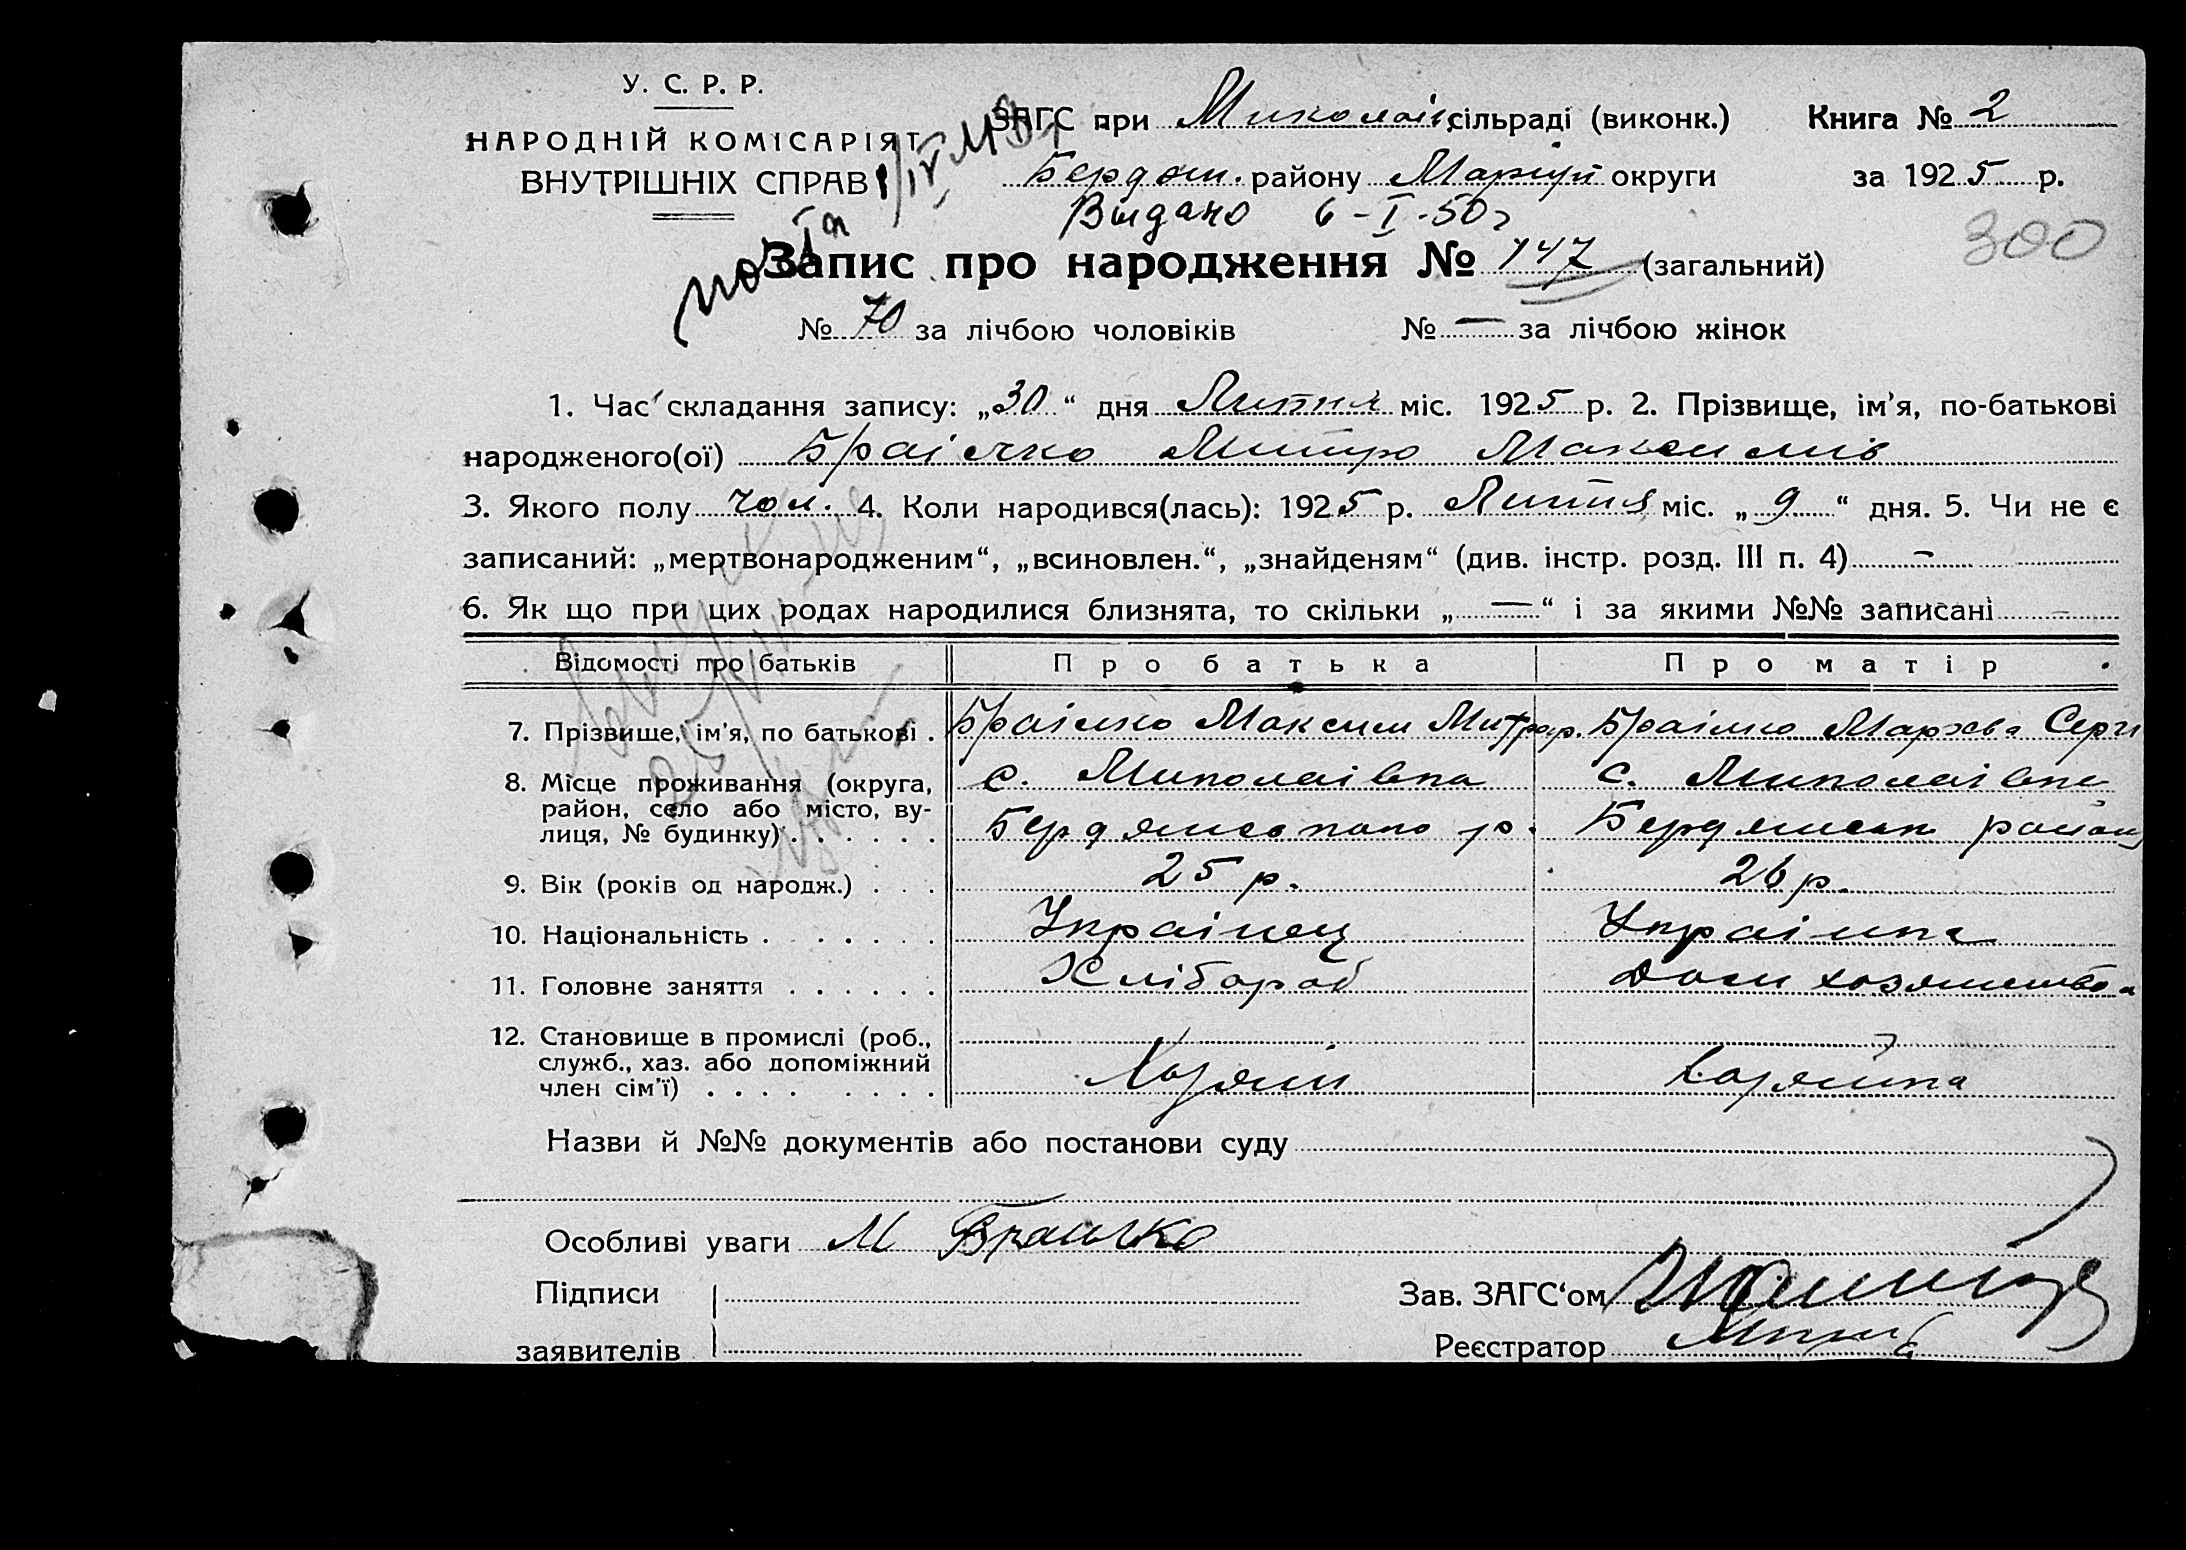 У. С. Р. Р.
НАРОДНІЙ КОМІСАРІЯТ
ВНУТРІШНІХ СПРАВ
ЗАГС при Миколаїв сільраді (виконк.) Книга № 2
Бердян. району Маріуп округи за 1925 р.
Выдано 6-I-50 г
300
Запис про народження № 147 (загальний)
№ 70 за лічбою чоловіків № — за лічбою жінок
1. Час складання запису: „30“ дня Липня міс. 1925 р. 2. Прізвище, ім’я, по-батькові
народженого(ої) Митро Максимів
3. Якого полу чол. 4. Коли народився(лась): 1925 р. Липня міс. „9“ дня. 5. Чи не є
записаний: „мертвонародженим“, „всиновлен.“, „знайденям“ (див. інстр. розд. III п. 4) –
6. Як що при цих родах народилися близнята, то скільки „—“ і за якими №№ записані –
Відомості про батьків Про батька Про матір
7. Прізвище, ім’я, по батькові . Браілко Максим Митроф. Браілко Мархва Серг
8. Місце проживання (округа, с. Миколаівка с. Миколаівка
район, село або місто, ву-
лиця, № будинку) . . . . . . Бердянського р. Бердянськ району
9. Вік (років од народж.) . . . 25 р. 26 р.
10. Національність . . . . . . Украінец Украінка
11. Головне заняття . . . . . . Хлібороб Дом хозяйство
12. Становище в промислі (роб.,
служб., хаз. або допоміжний
член сім’ї) . . . . . . . . Хозяін хозяйка
Назви й №№ документів або постанови суду
Особливі уваги М Браілко
Підписи
заявителів
Зав. ЗАГС‘ом
Реєстратор